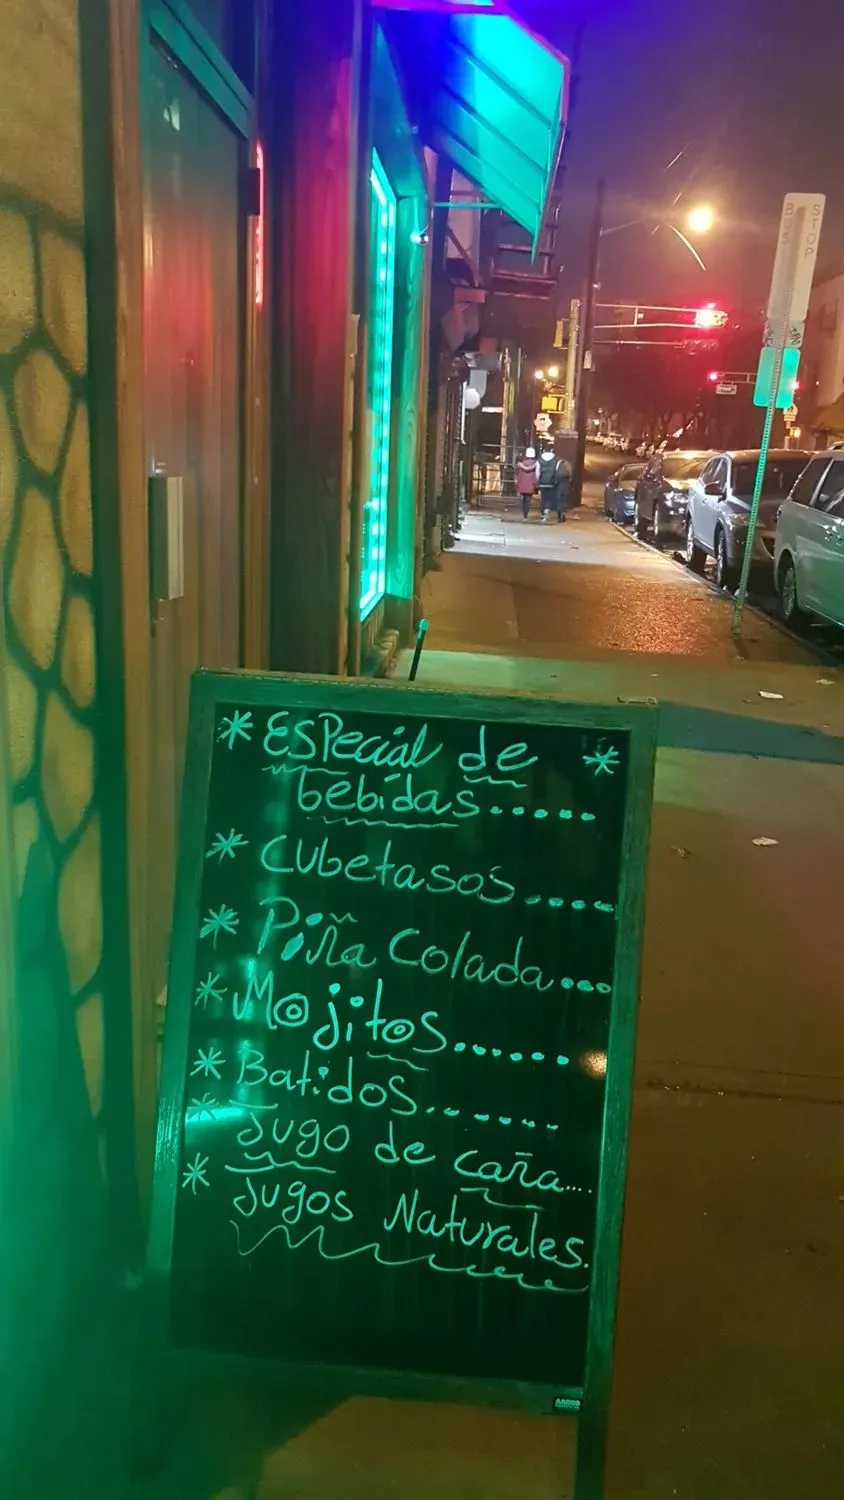 * Especial de *
bebidas.....
* Cubetasos....
* Piña Colada...
* Mojitos.......
* Batidos.......
* Jugo de caña...
* Jugos Naturales.
BUS STOP